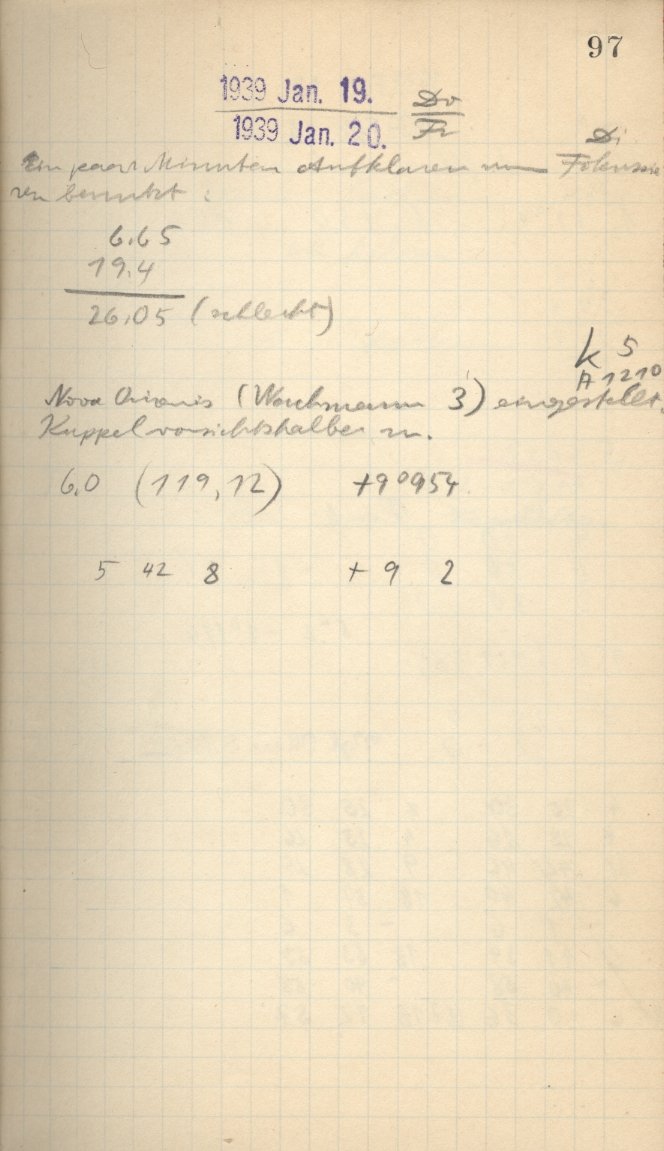 97
1939 Jan. 19. Do
1939 Jan. 20. Fr
Di
Ein paar Minuten Aufklaren zum Fokussie
ren benutzt:
6.65
19.4
26.05 (schlecht)
k 5
A 1210
Nova Orionis (Wachmann 3) eingestellt.
Kuppel vorsichtshalber zu.
6,0 (119,12) +9°954
5 42 8 + 9 2